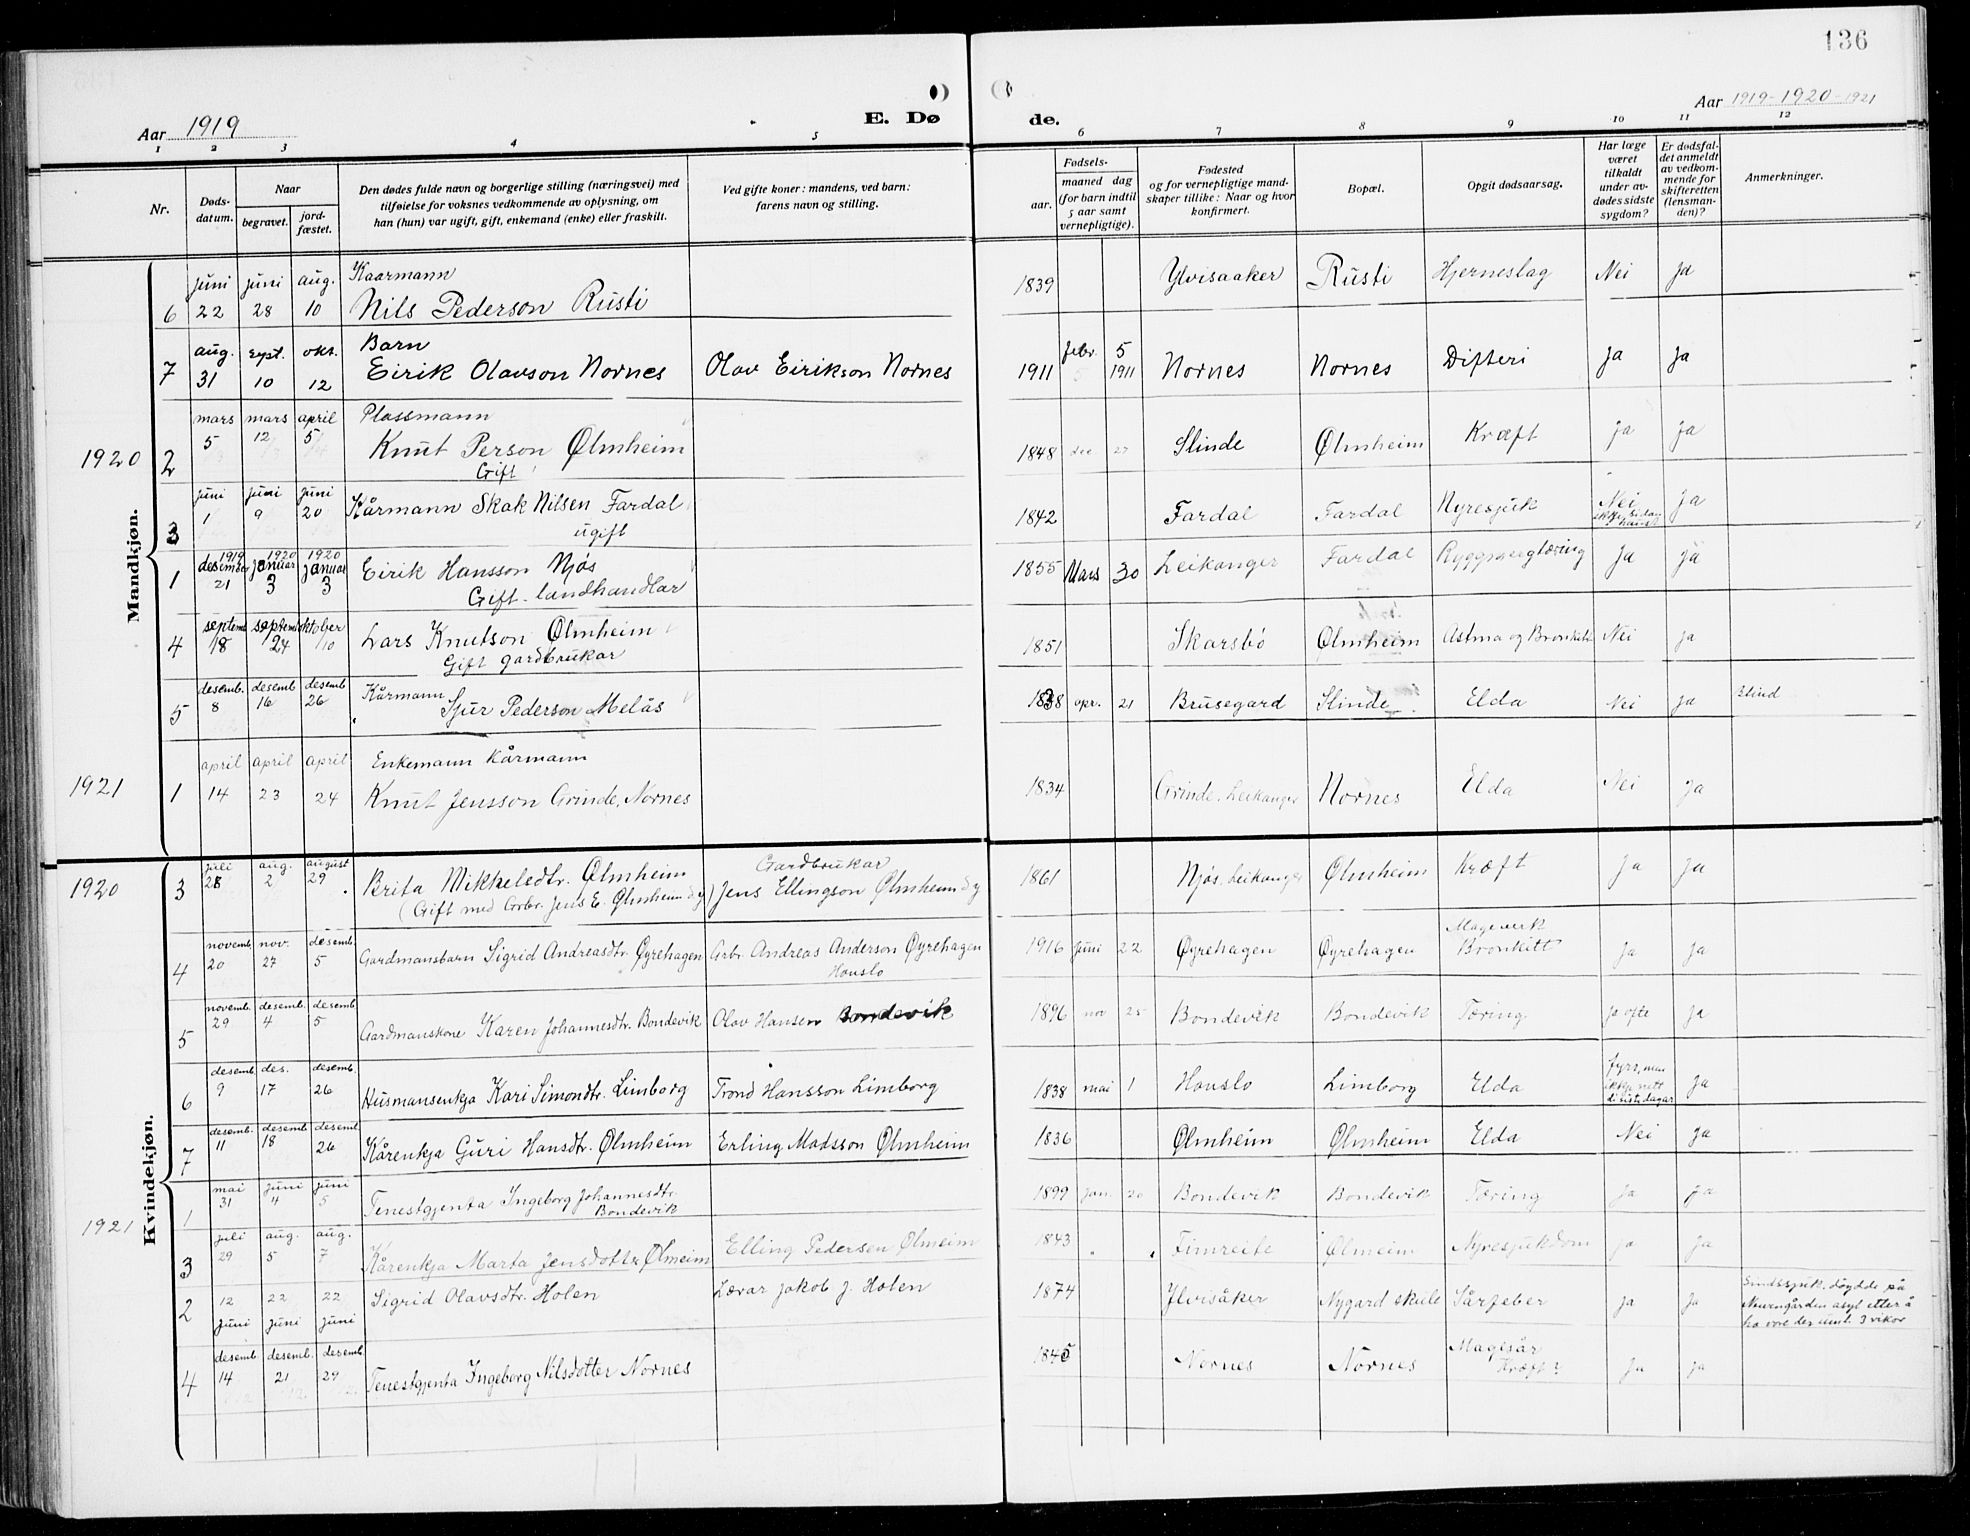 136
Aar 1919
E. Dø
de.
Aar 1919-1920-1921
1 2 3 4 5 6 7 8 9 10 11 12
Nr.
Døds-
datum.
Naar
begravet.
jord-
fæstet.
Den dødes fulde navn og borgerlige stilling (næringsvei) med
tilføielse for voksnes vedkommende av oplysning, om
han (hun) var ugift, gift, enkemand (enke) eller fraskilt.
Ved gifte koner: mandens, ved barn:
farens navn og stilling.
Fødsels-
aar.
maaned dag
(for barn indtil
5 aar samt
vernepligtige).
Fødested
og for vernepligtige mand-
skaper tillike: Naar og hvor
konfirmert.
Bopæl.
Opgit dødsaarsag.
Har læge
været
tilkaldt
under av-
dødes sidste
sygdom?
Er dødsfal-
det anmeldt
av vedkom-
mende for
skifteretten
(lensman-
den)?
Anmerkninger.
Mandkjøn.
juni juni aug. Kaarmann
6 22 28 10 Nils Pederson Rusti 1839 Ylvisaaker Rusti Hjerneslag Nei ja
aug. sept. okt. Barn
7 31 10 12 Eirik Olavson Nornes Olav Eirikson Nornes 1911 febr. 5 1911 Nornes Nornes Difteri ja ja
1920
mars mars april Plassmann
2 5 12 5 Knut Person Ølmheim 1848 dec 27 Slinde Ølmheim Kræft ja ja
Gift
juni juni juni
3 1 9 20 Kårmann Skak Nilsen Fardal 1842 Fardal Fardal Nyresjuk Nei ja
ugift
1919 1920 1920
desember januar januar
1 21 3 3 Eirik Hansson Njøs 1855 Mars 30 Leikanger Fardal Ja ja
Gift - landhandlar
septemb septemb oktober
4 18 24 10 Lars Knutson Ølmheim 1851 Skarsbö Ølmheim Astma og Bronkitt Nei ja
Gift gardbrukar
desemb. desemb desemb Kårmann
5 8 16 26 Sjur Pederson Melås 1838 apr. 21 Brusegard Slinde Elda Nei ja Blind
1921
april april april Enkemann kårmann
1 14 23 24 Knut Jensson Grinde, Nornes 1834 Grinde, Leikanger Nornes Elda Nei ja
Kvindekjøn.
1920
juli aug. august Gardbrukar
3 28 2 29 Brita Mikkelsdtr. Ølmheim Jens Ellingson Ølmheim 1861 Njøs, Leikanger Ølmheim Kræft Ja ja
(Gift med Grbr. Jens E. Ølmheim)
novemb. nov. desemb.
4 20 27 5 Gardmansbarn Sigrid Andreasdtr. Øyrehagen Grbr. Andreas Anderson Øyrehagen 1916 Juni 22 Øyrehagen Øyrehagen Bronkitt Ja ja
Hauslo
novemb. desemb. desemb.
5 29 4 5 Gardmanskone Karen Johannesdtr. Bondevik Olav Hansen Bondevik 1896 nov 25 Bondevik Bondevik Tæring Ja ofte ja
desemb. des. desemb.
6 9 17 26 Husmansenkja Kari Simondtr. Limborg Trond Hansson Limborg 1838 mai 1 Hauslo Limborg Elda fyrr, men ikkje nett di siste dagar ja
desemb. desemb desemb
7 11 18 26 Kårenkja Guri Hansdtr. Ølmheim Erling Madsson Ølmheim 1836 Ølmheim Ølmheim Elda Nei ja
1921
mai juni juni
1 31 4 5 Tenestgjenta Ingeborg Johannesdtr. 1899 jan. 20 Bondevik Bondevik Tæring Ja ja
Bondevik
juli aug. aug.
3 29 5 7 Kårenkja Marta Jensdotter Ølmeim Elling Pedersen Ølmeim 1843 Fimreite Ølmeim Nyresjukdom ja ja
2 12 22 22 Sigrid Olavsdtr. Holen Lærar Jakob J. Holen 1874 Ylvisåker Nygard skule Sårfeber ja ja Sindssjuk. døydde på
juni juni juni Neuengården asyl etter å
ha vore der uml. 3 vikor
desemb. desemb. desemb. Magesår
4 14 21 29 Tenestgjenta Ingeborg Nilsdotter Nornes 1845 Nornes Nornes Kræft? Ja ja